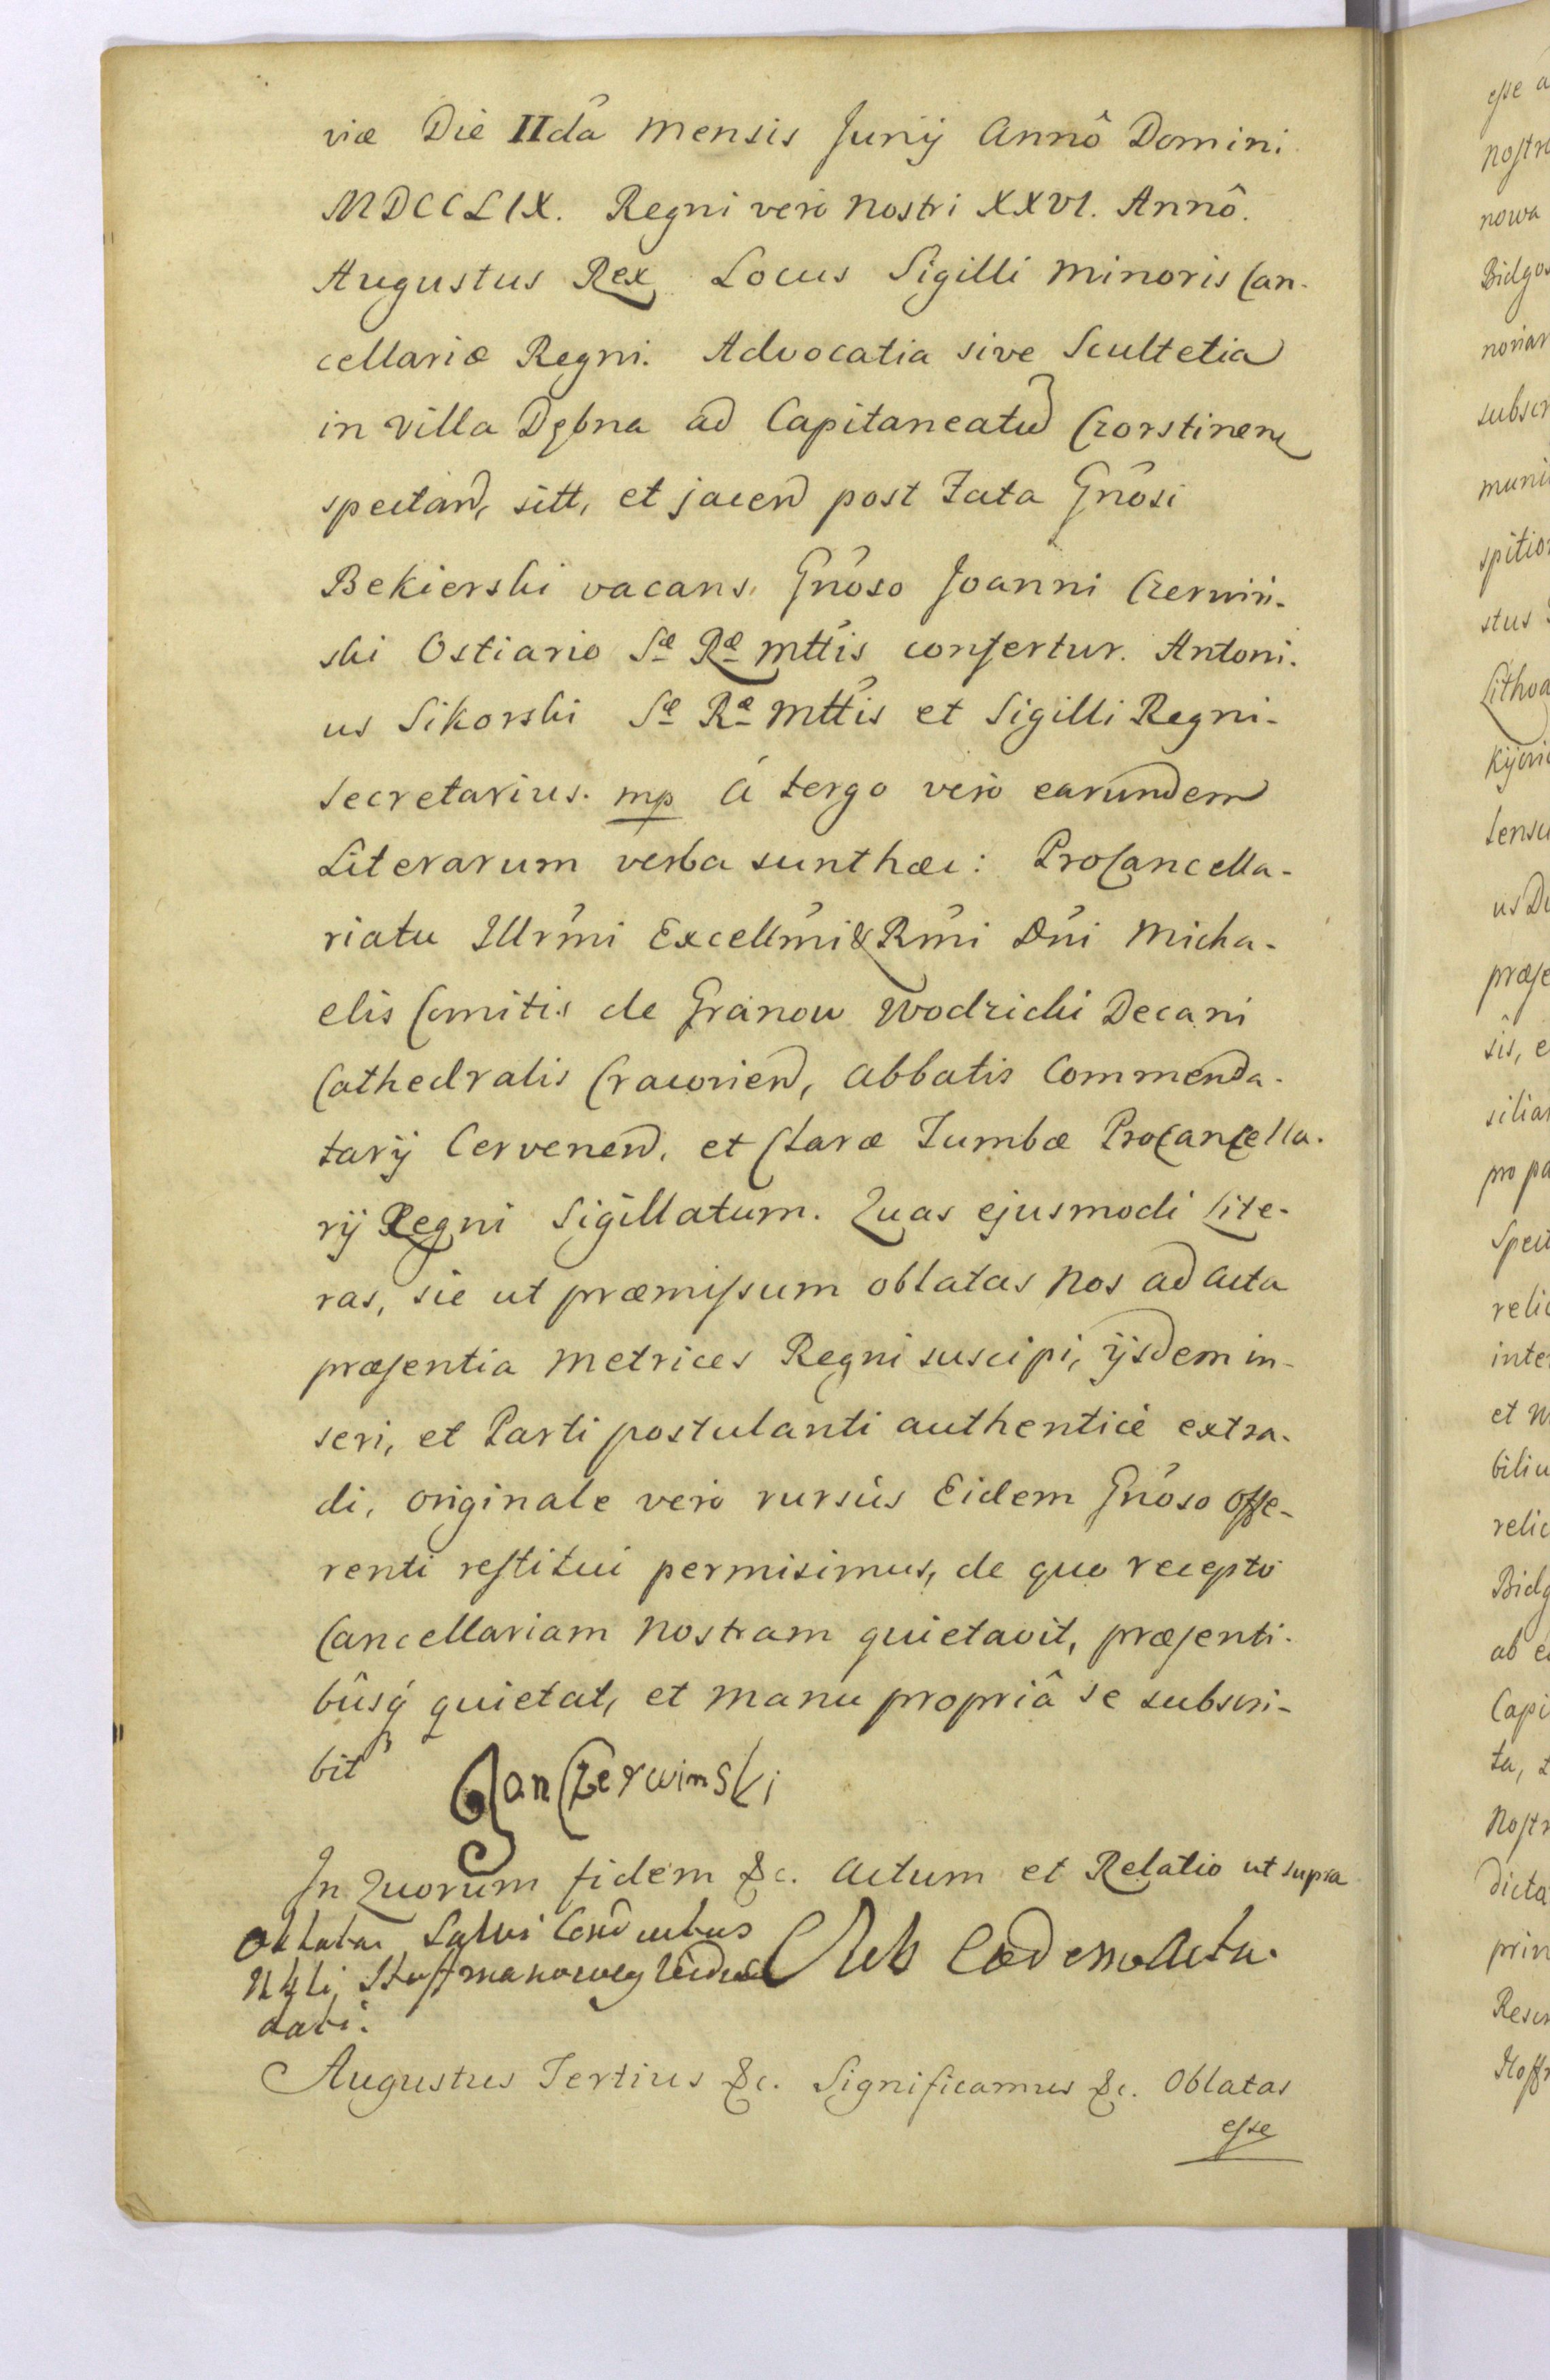 viæ Die IIdâ Mensis Junÿ Annô Domini
MDCCLIX. Regni verò Nostri XXVI. Annô.
Augustus Rex Locus Sigilli Minoris Can-
cellariæ Regni. Advocatia sive Scultetia
in Villa Dębna ad Capitaneatũ Czorstinen
spectan, sitt, et jacen post Fata Gñosi
Bekierski vacans, Gñoso Joanni Czerwin-
ski Ostiario Sæ Ræ Mttis confertur. Antoni-
us Sikorski Sæ Ræ Mttis et Sigilli Regni
Secretarius. mp à tergo verò earundem
Literarum verba sunt hæc: ProCancella-
riatu Illrmi Excellmi & Rmi Dñi Micha-
elis Comitis de Granow Wodzicki Decani
Cathedralis Cracovien, Abbatis Commenda-
tarÿ Cervenen, et Claræ Tumbæ ProCancella-
rÿ Regni Sigillatum. Quas ejusmodi Lite-
ras, sic ut præmissum oblatas Nos ad Acta
præsentia Metrices Regni suscipi, ÿsdem in-
seri, et Parti postulanti authenticè extra-
di, originale verò rursùs Eidem Gñoso Offe-
renti restitui permisimus, de quo receptô
Cancellariam Nostram quietavit, præsenti-
bûsq́ quietat, et manu propriâ se subscri-
bit
Jan Czerwinski
In Quorum fidem &c. Actum et Relatio ut supra
Oblata Salvi Conductus
dati.
Ub Eadem Acta.
Augustus Tertius &c. Significamus &c. Oblatas
esse